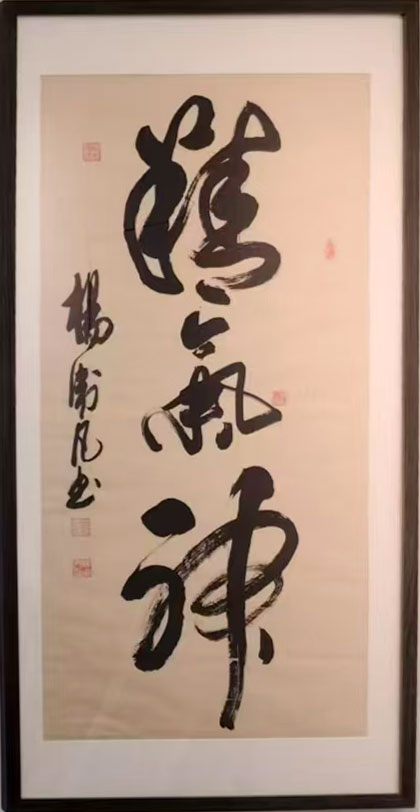 精氣神
楊衛凡书